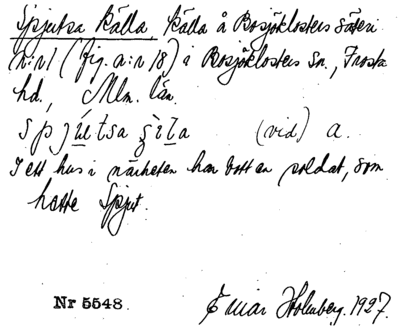 Spjutsa källa, källa å Bosjöklosters säteri
n:r 1 (fig. a:r 18) i Bosjöklosters sn., Frosta
hd., Mlm. län.
(vid) a.
I ett hus i närheten har bott en soldat, som
hette Spjut.
Nr 5548
Einar Holmberg. 1927.